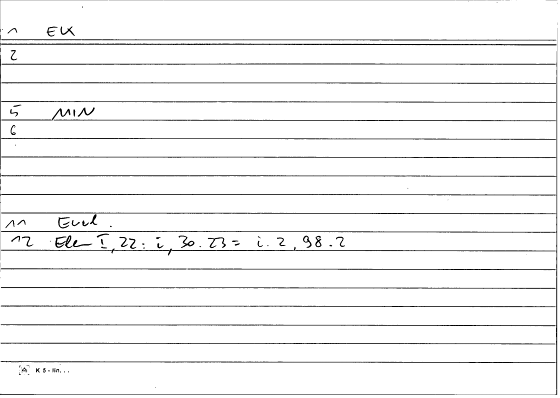 1 EUX
2
5 MIN
6
11 Eucl.
12 Elem I, 22: i, 30.23 = i.2, 98.2
K 5 - lin...